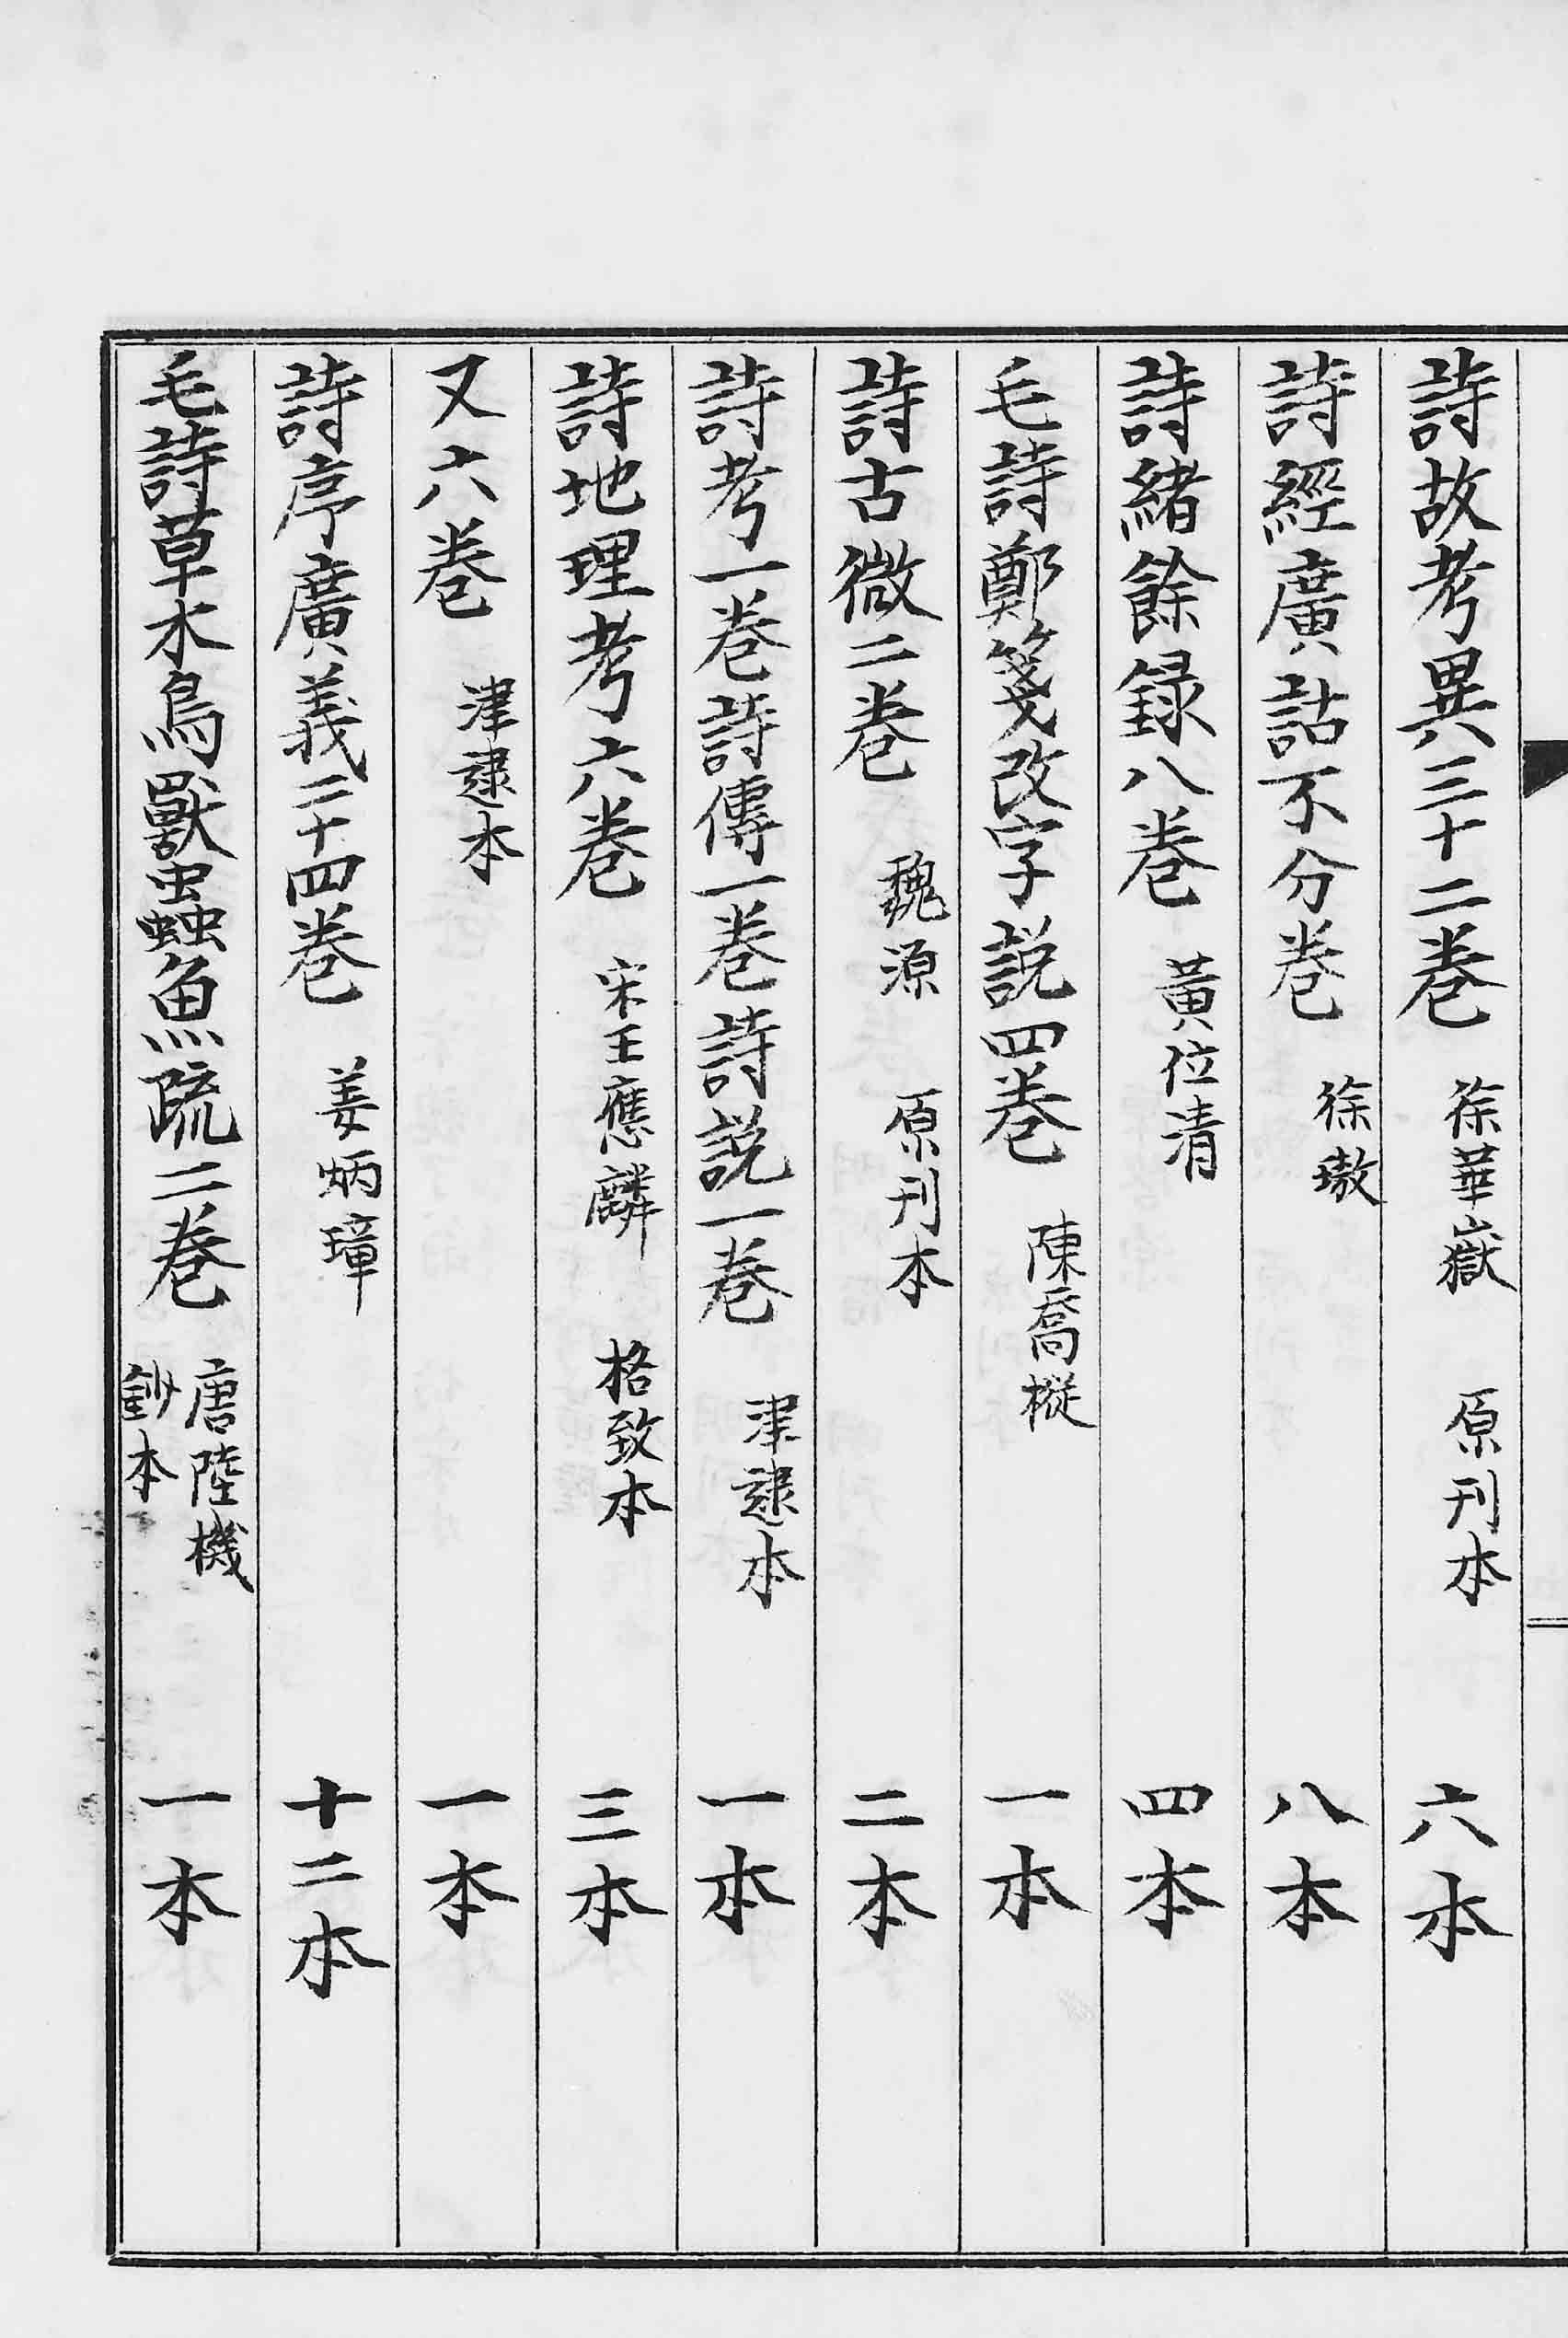 詩故考異三十二卷 徐華嶽 原刊本 六本
詩經廣詁不分卷 徐璈 八本
詩緒餘録八卷 黃位清 四本
毛詩鄭箋改字説四卷 陳喬樅 一本
詩古微二卷 魏源 原刊本 二本
詩考一卷詩傳一卷詩説一卷 津逮本 一本
詩地理考六卷 宋王應麟 格致本 三本
又六卷 津逮本 一本
詩序廣義二十四卷 姜炳璋 十二本
毛詩草木鳥獸蟲魚疏二卷 唐陸機 鈔本 一本